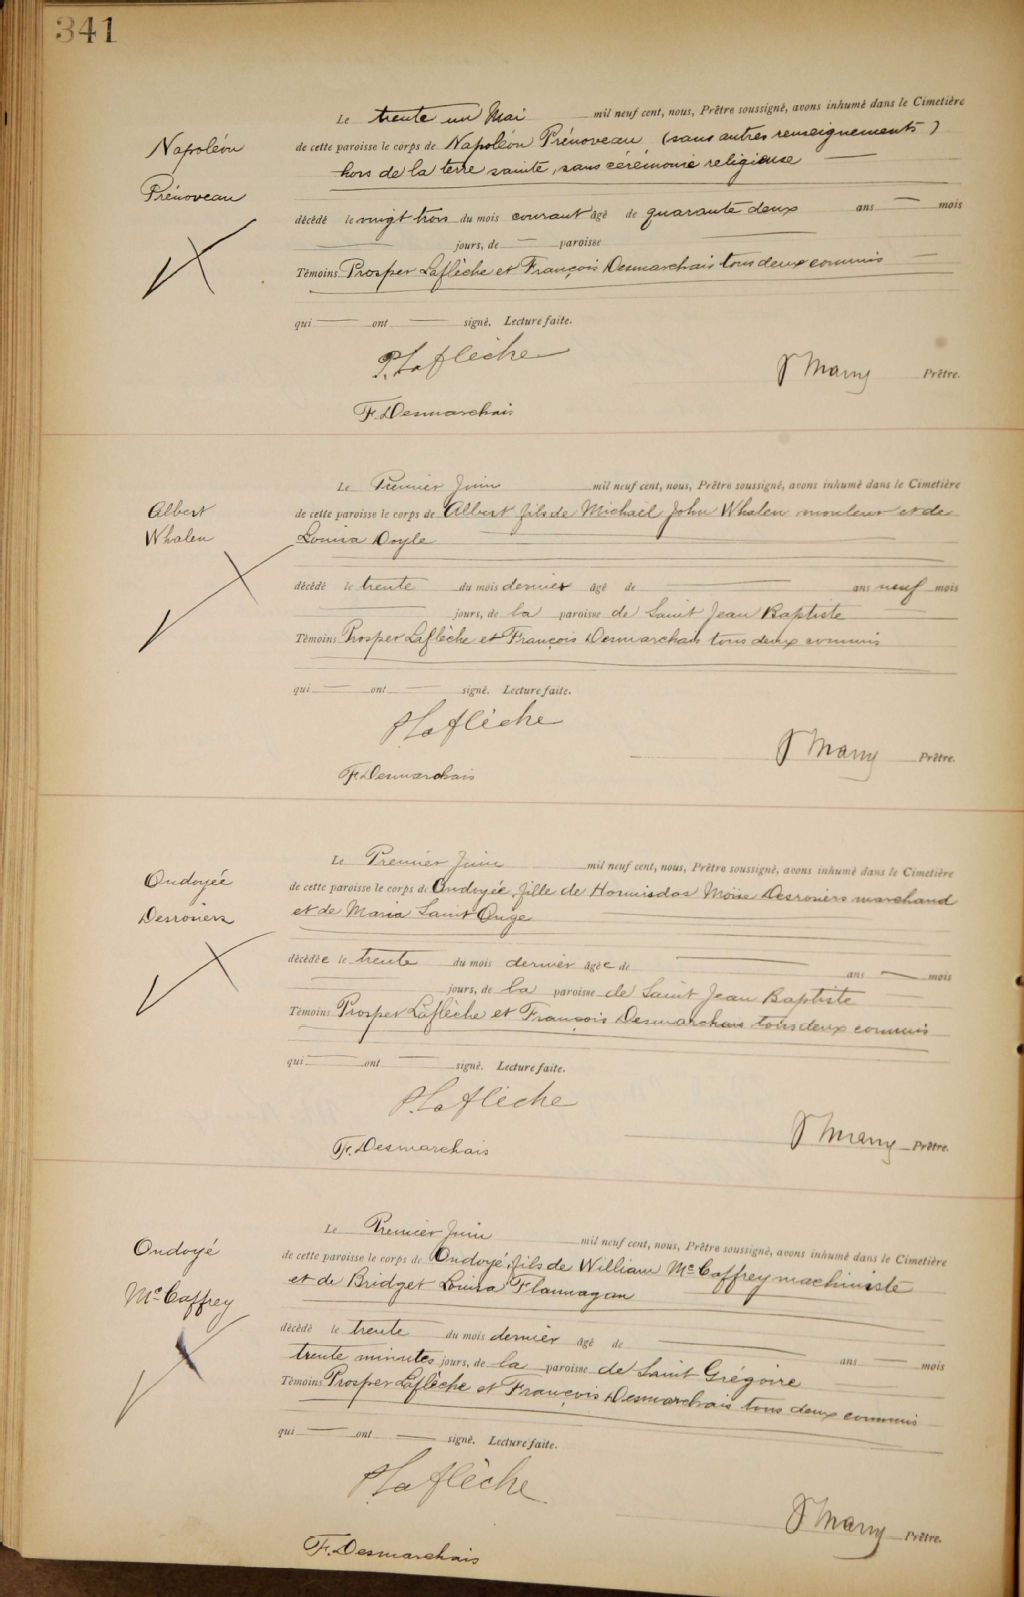 341
Le trente un Mai mil neuf cent, nous, Prêtre soussigné, avons inhumé dans le Cimetière
Napoléon
Prénoveau
de cette paroisse le corps de Napoléon Prénoveau (sans autres renseignements)
hors de la terre sainte, sans cérémonie religieuse
décédé le vingt trois du mois courant âgé de quarante deux ans — mois
jours, de — paroisse
Témoins Prosper Laflèche et François Desmarchais tous deux commis
qui — ont — signé. Lecture faite.
P. Laflèche
Prêtre.
F. Desmarchais
Le Premier Juin mil neuf cent, nous, Prêtre soussigné, avons inhumé dans le Cimetière
Albert
Whalen
de cette paroisse le corps de Albert fils de Michaël John Whalen mouleur et de
Louisa Doyle
décédé le trente du mois dernier âgé de — ans neuf mois
jours, de la paroisse de Saint Jean Baptiste
Témoins Prosper Laflèche et François Desmarchais tous deux commis
qui — ont — signé. Lecture faite.
P Laflèche
Prêtre.
F. Desmarchais
Le Premier Juin mil neuf cent, nous, Prêtre soussigné, avons inhumé dans le Cimetière
Ondoyée
Desrosiers
de cette paroisse le corps de Ondoyée, fille de Hormisdas Moïse Desrosiers marchand
et de Maria Saint Onge
décédée le trente du mois dernier âgée de — ans — mois
jours, de la paroisse de Saint Jean Baptiste
Témoins Prosper Laflèche et François Desmarchais tous deux commis
qui — ont — signé. Lecture faite.
P. Laflèche
Prêtre.
F. Desmarchais
Le Premier Juin mil neuf cent, nous, Prêtre soussigné, avons inhumé dans le Cimetière
Ondoyé
Mc Caffrey
de cette paroisse le corps de Ondoyé, fils de William Mc Caffrey machiniste
et de Bridget Louisa Flannagan
décédé le trente du mois dernier âgé de — ans — mois
trente minutes jours, de la paroisse de Saint Grégoire
Témoins Prosper Laflèche et François Desmarchais tous deux commis
qui — ont — signé. Lecture faite.
P Laflèche
Prêtre.
F. Desmarchais